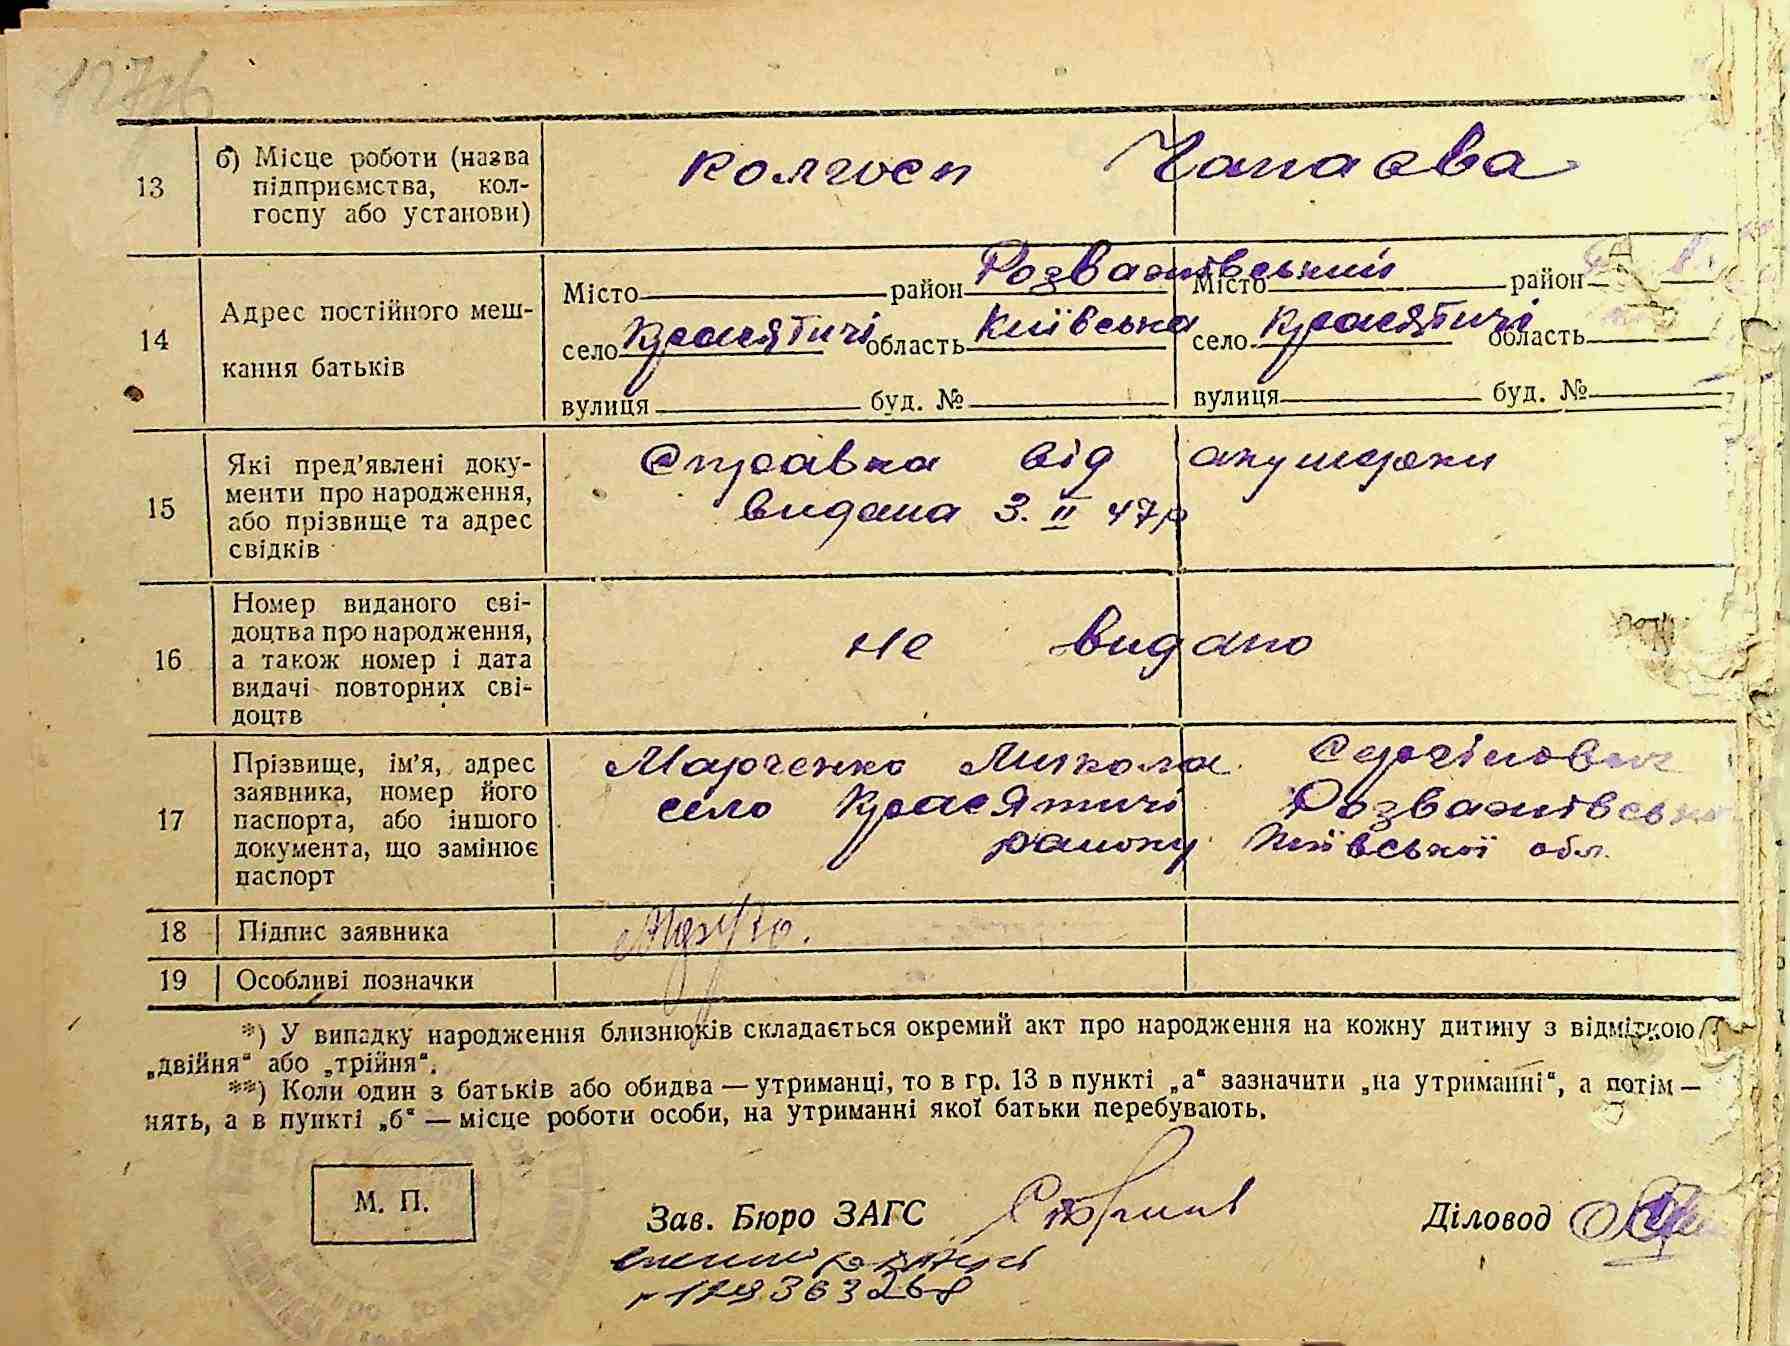 13
б) Місце роботи (назва
підприємства, кол-
госпу або установи)
колгосп Чапаєва
14
Адрес постійного меш-
кання батьків
Місто район Розважівський
село Красятичі область Київська
вулиця буд. №
Місто район
село Красятичі область
вулиця буд. №
15
Які пред’явлені доку-
менти про народження,
або прізвище та адрес
свідків
Справка від акушерки
видана 3. II 47р
16
Номер виданого сві-
доцтва про народження,
а також номер і дата
видачі повторних сві-
доцтв
не видано
17
Прізвище, ім’я, адрес
заявника, номер його
паспорта, або іншого
документа, що замінює
паспорт
Марченко Микола Сергійович
село Красятичі Розважівсько
району Київської обл.
18 Підпис заявника
19 Особливі позначки
*) У випадку народження близнюків складається окремий акт про народження на кожну дитину з відміткою
„двійня“ або „трійня“.
**) Коли один з батьків або обидва — утриманці, то в гр. 13 в пункті „а“ зазначити „на утриманні“, а потім —
нять, а в пункті „б“ — місце роботи особи, на утриманні якої батьки перебувають.
М. П.
Зав. Бюро ЗАГС
Діловод